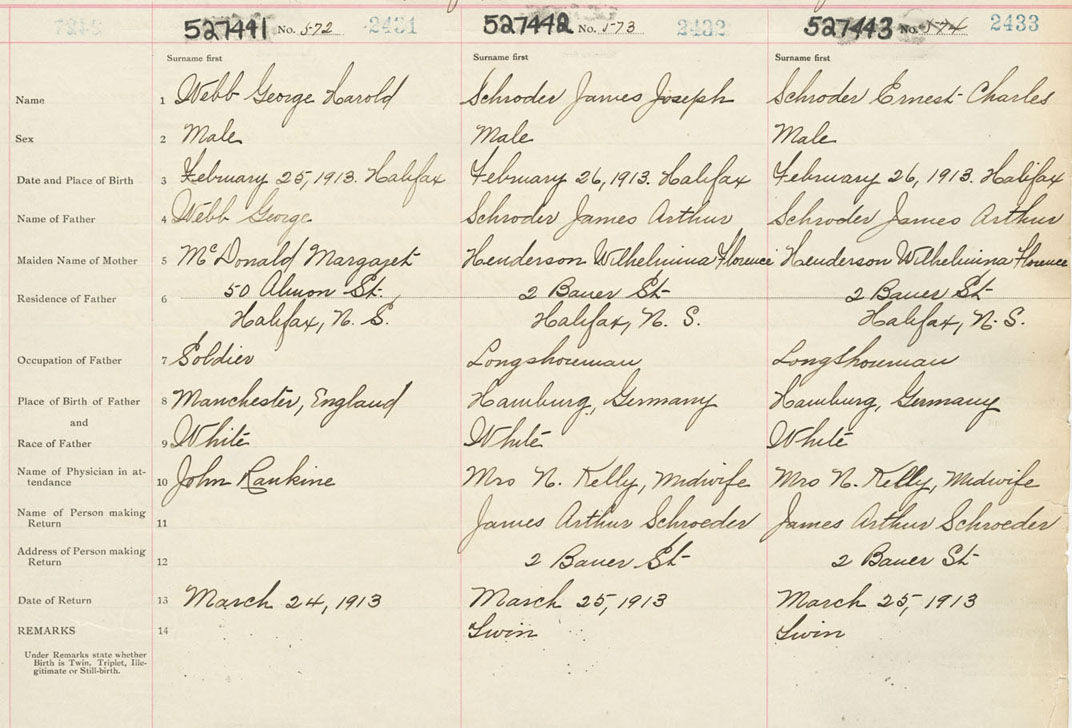 527441 No. 572 2431 527442 No. 573 2432 527443 No. 574 2433
Surname first Surname first Surname first
Name 1 Webb George Harold Schroder James Joseph Schroder Ernest Charles
Sex 2 Male Male Male
Date and Place of Birth 3 February 25, 1913. Halifax February 26, 1913. Halifax February 26, 1913. Halifax
Name of Father 4 Webb George Schroder James Arthur Schroder James Arthur
Maiden Name of Mother 5 McDonald Margaret Henderson Wilhelmina Florence Henderson Wilhelmina Florence
Residence of Father 6 50 Almon St. 2 Bauer St 2 Bauer St
Halifax, N. S. Halifax, N. S. Halifax, N. S.
Occupation of Father 7 Soldier Longshoreman Longshoreman
Place of Birth of Father 8 Manchester, England Hamburg, Germany Hamburg, Germany
and
Race of Father 9 White White White
Name of Physician in at-
tendance 10 John Rankine Mrs N. Kelly, Midwife Mrs N. Kelly, Midwife
Name of Person making
Return 11 James Arthur Schroeder James Arthur Schroeder
Address of Person making
Return 12 2 Bauer St 2 Bauer St
Date of Return 13 March 24, 1913 March 25, 1913 March 25, 1913
REMARKS 14 Twin Twin
Under Remarks state whether
Birth is Twin, Triplet, Ille-
gitimate or Still-birth.